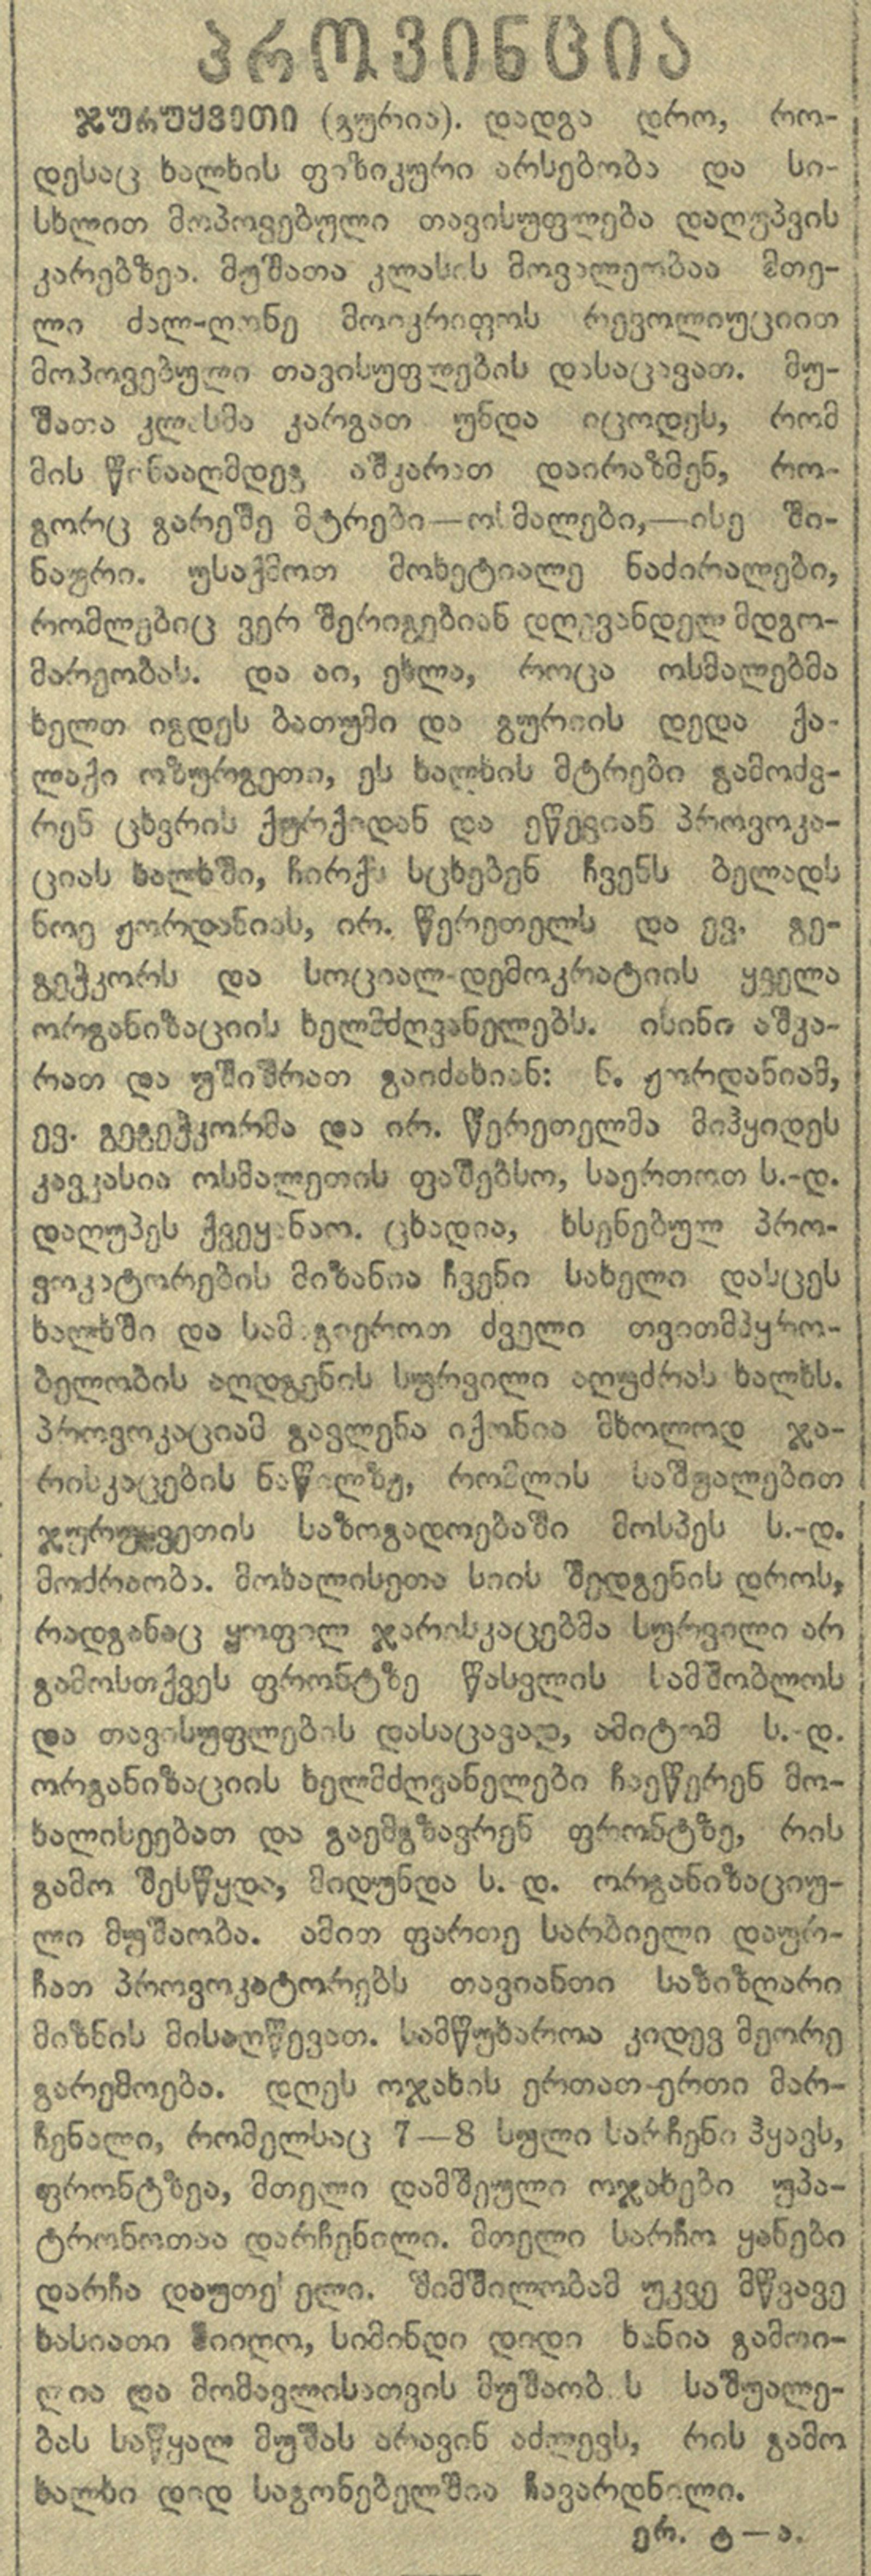 პროვინცია
ჯურუყვეთი (გურია). დადგა დრო, რო-
დესაც ხალხის ფიზიკური არსებობა და სი-
სხლით მოპოვებული თავისუფლება დაღუპვის
კარებზეა. მუშათა კლასის მოვალეობაა მთე-
ლი ძალ-ღონე მოიკრიფოს რევოლიუციით
მოპოვებული თავისუფლების დასაცავათ. მუ-
შათა კლასმა კარგათ უნდა იცოდეს, რომ
მის წინააღმდეგ აშკარათ დაირაზმენ, რო-
გორც გარეშე მტრები—ოსმალები,—ისე ში-
ნაური. უსაქმოთ მოხეტიალე ნაძირალები,
რომლებიც ვერ შერიგებიან დღევანდელ მდგო-
მარეობას. და აი, ეხლა, როცა ოსმალებმა
ხელთ იგდეს ბათუმი და გურიის დედა ქა-
ლაქი ოზურგეთი, ეს ხალხის მტრები გამოძვ-
რენ ცხვრის ქურქიდან და ეწევიან პროვოკა-
ციას ხალხში, ჩირქს სცხებენ ჩვენს ბელადს
ნოე ჟორდანიას, ირ. წერეთელს და ევ. გე-
გეჭკორს და სოციალ-დემოკრატიის ყველა
ორგანიზაციის ხელმძღვანელებს. ისინი აშკა-
რათ და უშიშრათ გაიძახიან: ნ. ჟორდანიამ,
ევ. გეგეჭკორმა და ირ. წერეთელმა მიჰყიდეს
კავკასია ოსმალეთის ფაშებსო, საერთოთ ს.-დ.
დაღუპეს ქვეყანაო. ცხადია, ხსენებულ პრო-
ვოკატორების მიზანია ჩვენი სახელი დასცეს
ხალხში და სამაგიეროთ ძველი თვითმპყრო-
ბელობის აღდგენის სურვილი აღუძრას ხალხს.
პროვოკაციამ გავლენა იქონია მხოლოდ ჯა-
რისკაცების ნაწილზე, რომლის საშუალებით
ჯურუყვეთის საზოგადოებაში მოსპეს ს.-დ.
მოძრაობა. მოხალისეთა სიის შედგენის დროს,
რადგანაც ყოფილ ჯარისკაცებმა სურვილი არ
გამოსთქვეს ფრონტზე წასვლის სამშობლოს
და თავისუფლების დასაცავად, ამიტომ ს.-დ.
ორგანიზაციის ხელმძღვანელები ჩაეწერენ მო-
ხალისეებათ და გაემგზავრენ ფრონტზე, რის
გამო შესწყდა, მიდუნდა ს. დ. ორგანიზაციუ-
ლი მუშაობა. ამით ფართე სარბიელი დაურ-
ჩათ პროვოკატორებს თავიანთი საზიზღარი
მიზნის მისაღწევათ. სამწუხაროა კიდევ მეორე
გარემოება. დღეს ოჯახის ერთათ-ერთი მარ-
ჩენალი, რომელსაც 7—8 სული სარჩენი ჰყავს,
ფრონტზეა, მთელი დამშეული ოჯახები უპა-
ტრონოთაა დარჩენილი. მთელი სარჩო ყანები
დარჩა დაუთესელი. შიმშილობამ უკვე მწვავე
ხასიათი მიიღო, სიმინდი დიდი ხანია გამოი-
ლია და მომავლისათვის მუშაობის საშუალე-
ბას საწყალ მუშას არავინ აძლევს, რის გამო
ხალხი დიდ საგონებელშია ჩავარდნილი.
ერ. ტ—ა.